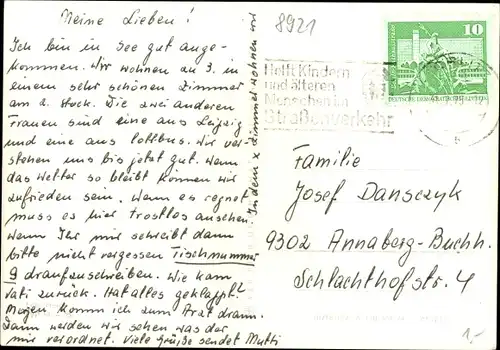 Meine Lieben!
Ich bin in See gut ange-
kommen. Wir wohnen zu 3. in
einem sehr schönen Zimmer
am 2. Stock. Die zwei anderen
Frauen sind eine aus Leipzig
und eine aus Cottbus. Wir ver
stehen uns bis jetzt gut. Wenn
das Wetter so bleibt können wir
zufrieden sein. Wenn es regnet
muss es hier trostlos aussehen.
Wenn Ihr mir schreibt dann
bitte nicht vergessen Tischnummer
9 draufzuschreiben. Wie kam
Vati zurück. Hat alles geklappt?
Morgen komm ich zum Arzt dran.
Dann werden wir sehen was der
mir verordnet. Viele Grüße sendet Mutti
In dem x Zimmer wohnen wir
8921
10
DEUTSCHE DEMOKRATISCHE REPUBLIK
Helft Kindern
und älteren
Menschen im
Straßenverkehr
Familie
Josef Dansczyk
9302 Annaberg-Buchh.
Schlachthofstr. 4
1,-